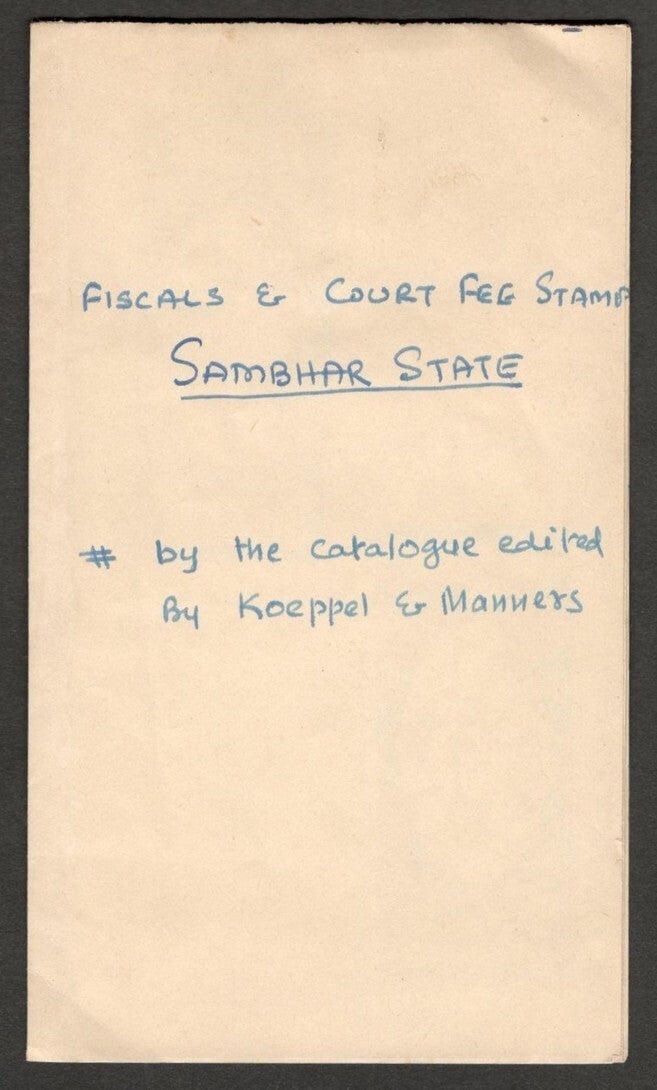 FISCALS & COURT FEE STAMP
SAMBHAR STATE
# by the catalogue edited
By Koeppel & Manners